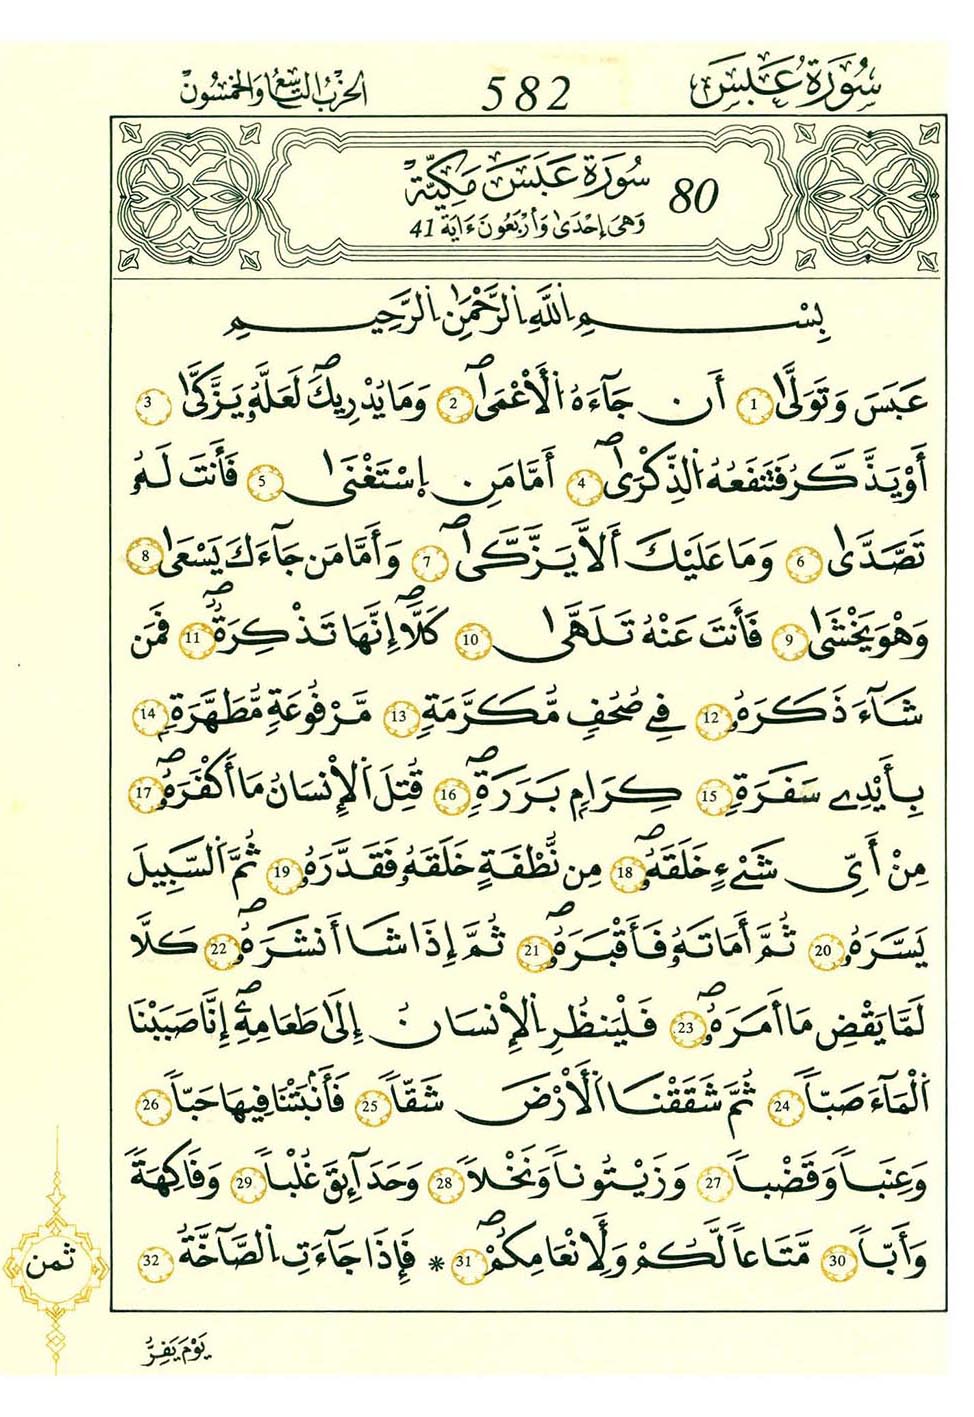 سُورَةُ عَبَسَ 582 الحِزْبُ التَّاسِعُ وَالخَمْسُونَ
سُورَةُ عَبَسَ مَكِّيَّةٌ 80
وَهِيَ إِحْدَىٰ وَأَرْبَعُونَ ءَايَةً 41
بِسْمِ اِللَّهِ اِلرَّحْمَٰنِ اِلرَّحِيمِ
عَبَسَ وَتَوَلَّىٰ 1 أَن جَآءَهُ اُلَاعْمَىٰ صۖ 2 وَمَا يُدْرِيكَ صۖ لَعَلَّهُۥ يَزَّكَّىٰ 3
أَوْ يَذَّكَّرُ فَتَنفَعُهُ اُلذِّكْرَىٰ صۖ 4 أَمَّا مَنِ اِسْتَغْنَىٰ 5 فَأَنتَ لَهُۥ
تَصَّدَّىٰ 6 وَمَا عَلَيْكَ أَلَّا يَزَّكَّىٰ صۖ 7 وَأَمَّا مَن جَآءَكَ يَسْعَىٰ 8
وَهْوَ يَخْشَىٰ 9 فَأَنتَ عَنْهُ تَلَهَّىٰ 10 كَلَّآ صۖ إِنَّهَا تَذْكِرَةٌ صۖ 11 فَمَن
شَآءَ ذَكَرَهُۥ 12 فِے صُحُفٍ مُّكَرَّمَةٍ 13 مَّرْفُوعَةٍ مُّطَهَّرَةِۢ 14
بِأَيْدِے سَفَرَةٍ 15 كِرَامِۢ بَرَرَةٍ صۖ 16 قُتِلَ اَلِانسَٰنُ مَا أَكْفَرَهُۥ صۖ 17
مِنْ أَيِّ شَےْءٍ خَلَقَهُۥ صۖ 18 مِن نُّطْفَةٍ خَلَقَهُۥ فَقَدَّرَهُۥ 19 ثُمَّ اَلسَّبِيلَ
يَسَّرَهُۥ 20 ثُمَّ أَمَاتَهُۥ فَأَقْبَرَهُۥ صۖ 21 ثُمَّ إِذَا شَا أَنشَرَهُۥ صۖ 22 كَلَّا
لَمَّا يَقْضِ مَا أَمَرَهُۥ صۖ 23 فَلْيَنظُرِ اِلِانسَٰنُ إِلَىٰ طَعَامِهِۦ صۖ إِنَّا صَبَبْنَا
اَلْمَآءَ صَبّاً 24 ثُمَّ شَقَقْنَا اَلَارْضَ شَقّاً 25 فَأَنۢبَتْنَا فِيهَا حَبّاً 26
وَعِنَباً وَقَضْباً 27 وَزَيْتُوناً وَنَخْلاً 28 وَحَدَآئِقَ غُلْباً 29 وَفَٰكِهَةً
وَأَبّاً 30 مَّتَٰعاً لَّكُمْ وَلِأَنْعَٰمِكُمْ صۖ 31 * فَإِذَا جَآءَتِ اِلصَّآخَّةُ 32
ثمن
يَوْمَ يَفِرُّ